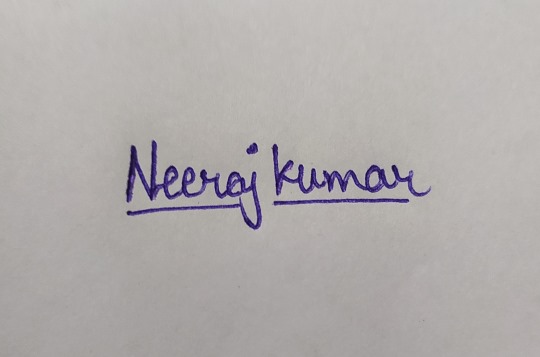 Neeraj kumar